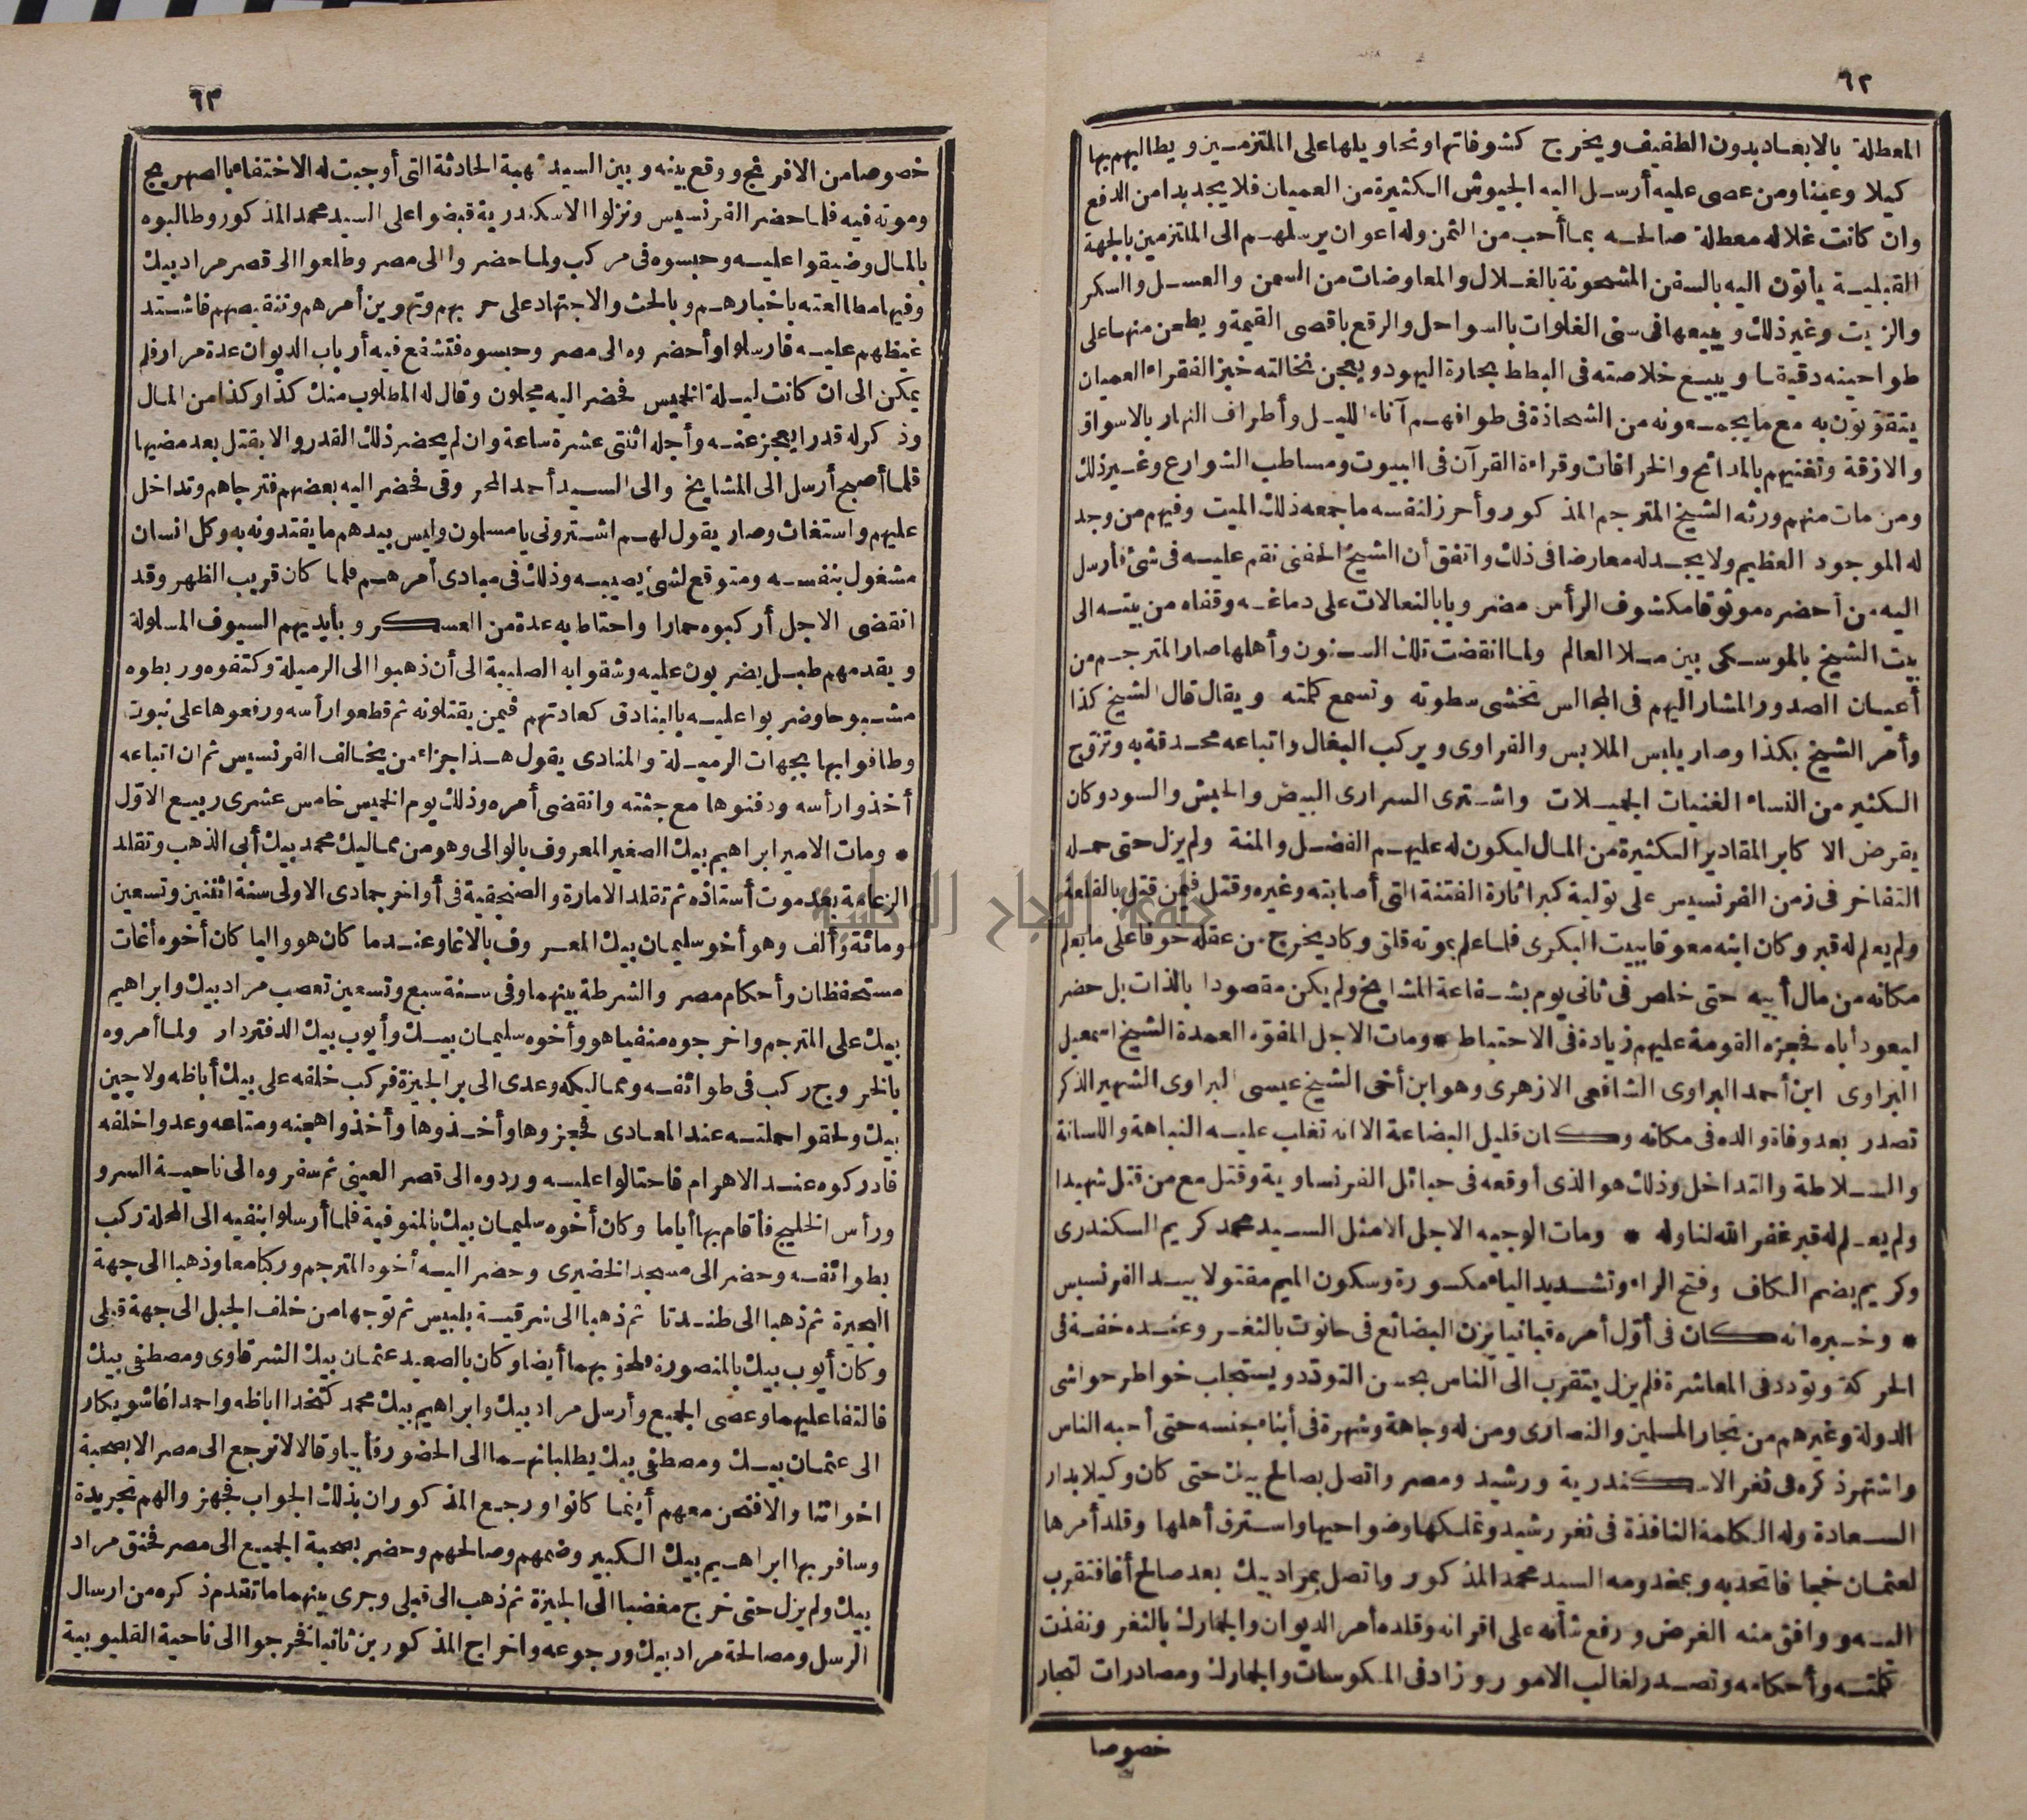 ٦٢
المعطلة بالابعاد بدون الطفيف ويخرج كشوفاتها وتحاويلها على الملتزمين ويطالبهم بها
كيلا وعينا ومن عصى عليه أرسل اليه الجيوش الكثيرة من العميان فلا يجد بدا من الدفع
وان كانت غلاله معطلة صالحه بما أحب من الثمن وله اعوان يرسلهم الى الملتزمين بالجهة
القبلية يأتون اليه بالسفن المشحونة بالغلال والمعاوضات من السمن والعسل والسكر
والزيت وغير ذلك ويبيعها فى سنى الغلوات بالسواحل والرقع باقصى القيمة ويطحن منها على
طواحينه دقيقا ويبيع خلاصته فى البطط بحارة اليهود ويعجن نخالته خبز الفقراء العميان
يتقوتون به مع ما يجمعونه من الشحاذة فى طوافهم آناء الليل وأطراف النهار بالاسواق
والازقة وتغنيهم بالمدائح والخرافات وقراءة القرآن فى البيوت ومساطب الشوارع وغير ذلك
ومن مات منهم ورثه الشيخ المترجم المذكور وأحرز لنفسه ما جمعه ذلك الميت وفيهم من وجد
له الموجود العظيم ولا يجد له معارضا فى ذلك واتفق أن الشيخ الحفنى نقم عليه فى شئ فأرسل
اليه من أحضره موثوقا مكشوف الرأس مضروبا بالنعالات على دماغه وقفاه من بيته الى
بيت الشيخ بالموسكى بين ملا العالم ولما انقضت تلك السنون وأهلها صار المترجم من
أعيان الصدور المشار اليهم فى المجالس تخشى سطوته وتسمع كلمته ويقال قال الشيخ كذا
وأمر الشيخ بكذا وصار يلبس الملابس والفراوى ويركب البغال واتباعه محدقة به وتزوج
الكثير من النساء الغنيات الجميلات واشترى السرارى البيض والحبش والسود وكان
يقرض الاكابر المقادير الكثيرة من المال ليكون له عليهم الفضل والمنة ولم يزل حتى حمله
التفاخر فى زمن الفرنسيس على تولية كبر اثارة الفتنة التى أصابته وغيره وقتل فيمن قتل بالقلعة
ولم يعلم له قبر وكان ابنه معوقا ببيت البكرى فلما علم بموته قلق وكاد يخرج من عقله خوفا على ما يعلم
مكانه من مال أبيه حتى خلص فى ثانى يوم بشفاعة المشايخ ولم يكن مقصودا بالذات بل حضر
ليعود أباه فحجزه القومة عليهم زيادة فى الاحتياط * ومات الاجل المفوه العمدة الشيخ اسمعيل
البراوى ابن أحمد البراوى الشافعى الازهرى وهو ابن أخى الشيخ عيسى البراوى الشهير الذكر
تصدر بعد وفاة والده فى مكانه وكان قليل البضاعة الا انه تغلب عليه النباهة واللسانة
والسلاطة والتداخل وذلك هو الذى أوقعه فى حبائل الفرنساوية وقتل مع من قتل شهيدا
ولم يعلم له قبر غفر الله لنا وله * ومات الوجيه الاجل الامثل السيد محمد كريم السكندرى
وكريم بضم الكاف وفتح الراء وتشديد الياء مكسورة وسكون الميم مقتولا بيد الفرنسيس
* وخبره انه كان فى أول أمره قبانيا يزن البضائع فى حانوت بالثغر وعنده خفة فى
الحركة وتودد فى المعاشرة فلم يزل يتقرب الى الناس بحسن التودد ويستجلب خواطر حواشى
الدولة وغيرهم من تجار المسلمين والنصارى ومن له وجاهة وشهرة فى أبناء جنسه حتى أحبه الناس
واشتهر ذكره فى ثغر الاسكندرية ورشيد ومصر واتصل بصالح بيك حتى كان وكيلا بدار
السعادة وله الكلمة النافذة فى ثغر رشيد وتملكها وضواحيها واسترق أهلها وقلد أمرها
لعثمان خجا فاتحد به وبمخدومه السيد محمد المذكور واتصل بمراد بيك بعد صالح أغا فتقرب
اليه ووافق منه الغرض ورفع شأنه على اقرانه وقلده أمر الديوان والجمارك بالثغر ونفذت
كلمته وأحكامه وتصدر لغالب الامور وزاد فى المكوسات والجمارك ومصادرات التجار
خصوصا
٦٣
خصوصا من الافرنج ووقع بينه وبين السيد شهبة الحادثة التى أوجبت له الاختفاء بالصهريج
وموته فيه فلما حضر الفرنسيس ونزلوا الاسكندرية قبضوا على السيد محمد المذكور وطالبوه
بالمال وضيقوا عليه وحبسوه فى مركب ولما حضروا الى مصر وطلعوا الى قصر مراد بيك
وفيها مطالعته باخبارهم وبالحث والاجتهاد على حربهم وتهوين أمرهم وتنقيصهم فاشتد
غيظهم عليه فارسلوا وأحضروه الى مصر وحبسوه فتشفع فيه أرباب الديوان عدة مرار فلم
يمكن الى ان كانت ليلة الخميس فحضر اليه مجلون وقال له المطلوب منك كذا وكذا من المال
وذكر له قدرا يعجز عنه وأجله اثنتى عشرة ساعة وان لم يحضر ذلك القدر والا يقتل بعد مضيها
فلما أصبح أرسل الى المشايخ والى السيد أحمد المحروقى فحضر اليه بعضهم فترجاهم وتداخل
عليهم واستغاث وصار يقول لهم اشترونى يا مسلمون وليس بيدهم ما يفتدونه به وكل انسان
مشغول بنفسه ومتوقع لشئ يصيبه وذلك فى مبادى أمرهم فلما كان قريب الظهر وقد
انقضى الاجل أركبوه حمارا واحتاط به عدة من العسكر وبأيديهم السيوف المسلولة
ويقدمهم طبل يضربون عليه وشقوا به الصليبة الى أن ذهبوا الى الرميلة وكتفوه وربطوه
مشبوحا وضربوا عليه بالبنادق كعادتهم فيمن يقتلونه ثم قطعوا رأسه ورفعوها على نبوت
وطافوا بها بجهات الرميلة والمنادى يقول هذا جزاء من يخالف الفرنسيس ثم ان اتباعه
أخذوا رأسه ودفنوها مع جثته وانقضى أمره وذلك يوم الخميس خامس عشرى ربيع الاول
* ومات الامير ابراهيم بيك الصغير المعروف بالوالى وهو من مماليك محمد بيك أبى الذهب وتقلد
الزعامة بعد موت أستاذه ثم تقلد الامارة والصنجقية فى أواخر جمادى الاولى سنة اثنتين وتسعين
ومائة وألف وهو أخو سليمان بيك المعروف بالاغا وعندما كان هو واليا كان أخوه أغات
مستحفظان وأحكام مصر والشرطة بينهما وفى سنة سبع وتسعين تعصب مراد بيك وابراهيم
بيك على المترجم واخرجوه منفيا هو وأخوه سليمان بيك وأيوب بيك الدفتردار ولما أمروه
بالخروج ركب فى طوائفه ومماليكه وعدى الى بر الجيزة فركب خلفه على بيك أباظه ولاچين
بيك ولحقوا حملته عند المعادى فحجزوها وأخذوها وأخذوا هجنه ومتاعه وعدوا خلفه
فادركوه عند الاهرام فاحتالوا عليه وردوه الى قصر العينى ثم سفروه الى ناحية السرو
ورأس الخليج فأقام بها أياما وكان أخوه سليمان بيك بالمنوفية فلما أرسلوا بنفيه الى المحلة ركب
بطوائفه وحضر الى مسجد الخضيرى وحضر اليه أخوه المترجم وركبا معا وذهبا الى جهة
البحيرة ثم ذهبا الى طندتا ثم ذهبا الى شرقية بلبيس ثم توجها من خلف الجبل الى جهة قبلى
وكان أيوب بيك بالمنصورة فلحق بهما أيضا وكان بالصعيد عثمان بيك الشرقاوى ومصطفى بيك
فالتفا عليهما وعصى الجميع وأرسل مراد بيك وابراهيم بيك محمد كتخدا اباظه واحمد اغا شويكار
الى عثمان بيك ومصطفى بيك يطلبانهما الى الحضور فأبيا وقالا لا نرجع الى مصر الا بصحبة
اخواننا والا فنحن معهم أينما كانوا ورجع المذكوران بذلك الجواب فجهزوا لهم تجريدة
وسافر بها ابراهيم بيك الكبير وضمهم وصالحهم وحضر بصحبة الجميع الى مصر فحنق مراد
بيك ولم يزل حتى خرج مغضبا الى الجيزة ثم ذهب الى قبلى وجرى بينهما ما تقدم ذكره من ارسال
الرسل ومصالحة مراد بيك ورجوعه واخراج المذكورين ثانيا فخرجوا الى ناحية القليوبية